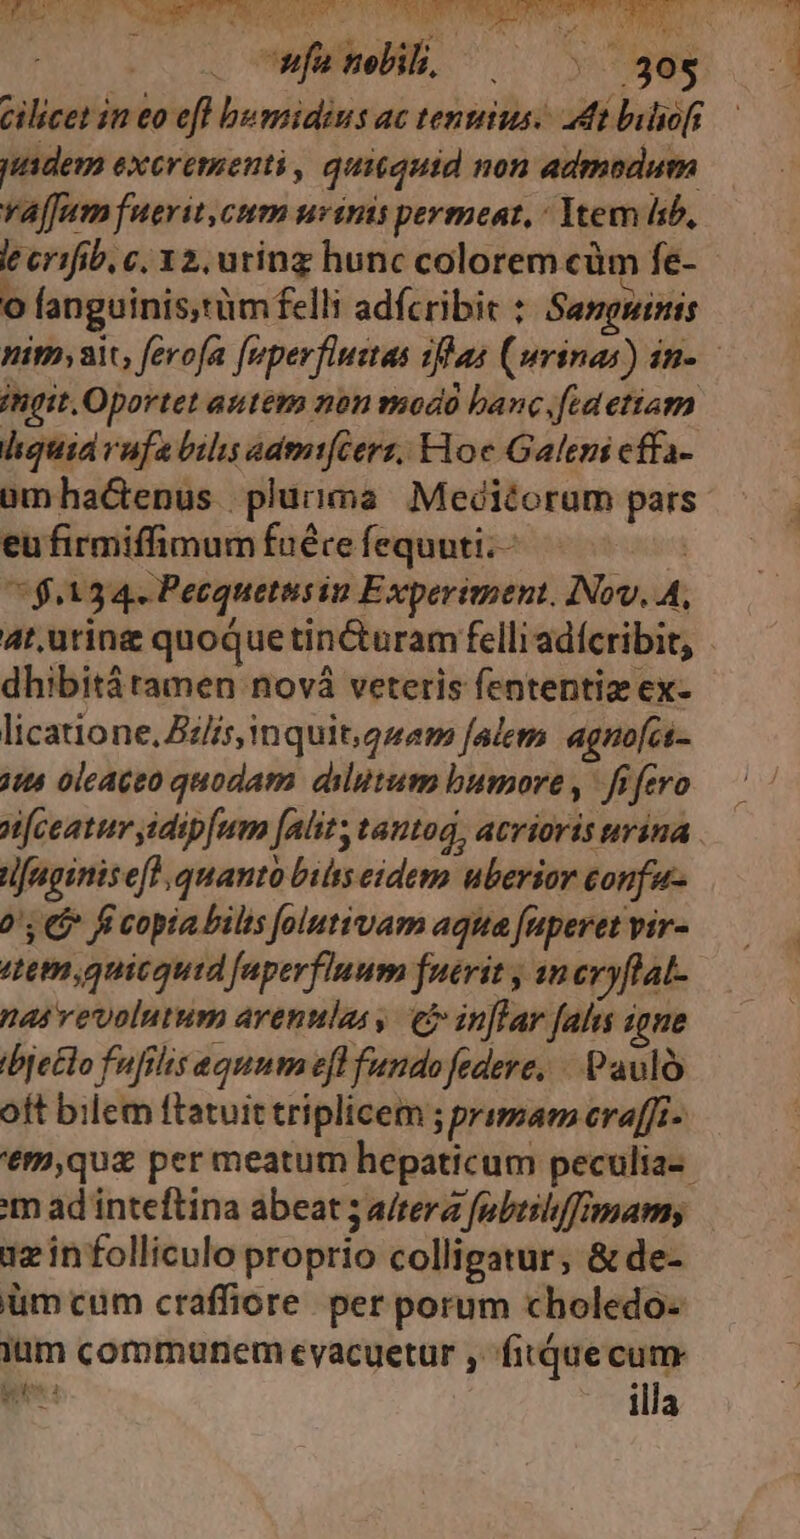 usu nobili, 305
cilicet in eo eſt humidius ac tenuius. At bilioſi
quidem excrementi, quicquid non admodum
raſſum fuerit, cum urinis permeat. Item lib.
de criſib. c. 12. urinæ hunc colorem cùm ſe-
o ſanguinis, tùm felli adſcribit : Sanguinis
nim, ait, ſeroſa ſuperfluitas iſtas (urinas) in-
ingit. Oportet autem non modò hanc, ſed etiam
liquid rufa bilis admiſceri. Hoc Galeni effa-
um hactenus plurima Medicorum pars
eu firmiſſimum fuêre ſequuti.
§. 134. Pecquetus in Experiment. Nov. A.
at. urinæ quoque tincturam felli adſcribit,
dhibitâ tamen novâ veteris ſententiæ ex-
licatione. Bilis, inquit, quam ſalem agnoſci-
us oleaceo quodam dilutum humore, ſi ſero
iſceatur, id ipſum ſalit; tantoq; acrioris urina
ilſuginis eſt, quantò bilis eidem uberior confu-
, & ſi copia bilis ſolutivam aquæ ſuperet vir-
utem, quicquid ſuperfluum fuerit, in cryſtal-
nas revolutum arenulas, & inſtar ſalis igne
bjecto fuſilis æquum eſt fundo ſedere. Paulò
oſt bilem ſtatuit triplicem ; primam craſſi-
em, quæ per meatum hepaticum peculia-
m ad inteſtina abeat ; alterã ſubtiliſſimam,
uæ in folliculo proprio colligatur, & de-
ùm cum craſſiore per porum choledo-
um communem evacuetur, ſitque cum
illa